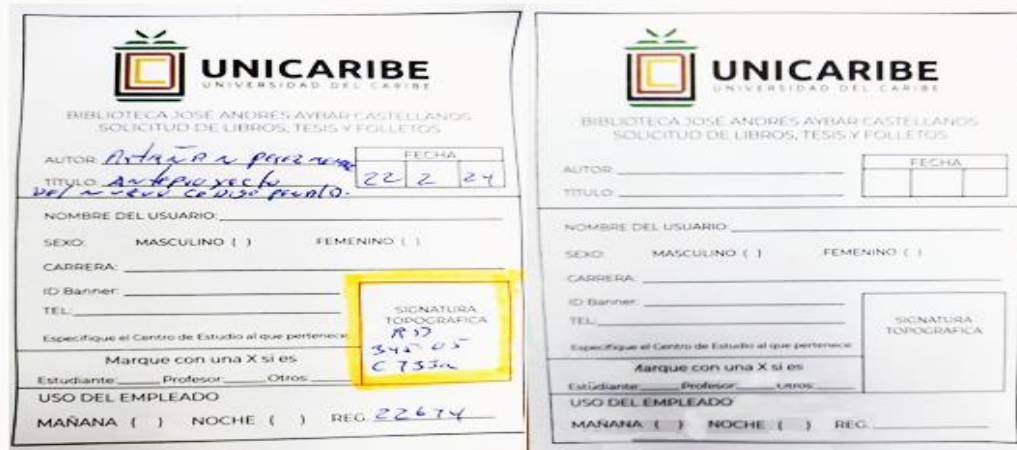 UNICARIBE
UNIVERSIDAD DEL CARIBE
BIBLIOTECA JOSÉ ANDRÉS AYBAR CASTELLANOS
SOLICITUD DE LIBROS, TESIS Y FOLLETOS
AUTOR:
FECHA
TÍTULO: Anteproyecto 22 2 24
del nuevo codigo penal
NOMBRE DEL USUARIO:
SEXO: MASCULINO ( ) FEMENINO ( )
CARRERA:
ID Banner:
TEL:
SIGNATURA
TOPOGRÁFICA
RD
345.05
Especifique el Centro de Estudio al que pertenece
Marque con una X si es
Estudiante: Profesor: Otros:
USO DEL EMPLEADO
MAÑANA ( ) NOCHE ( ) REG. 22674
UNICARIBE
UNIVERSIDAD DEL CARIBE
BIBLIOTECA JOSÉ ANDRÉS AYBAR CASTELLANOS
SOLICITUD DE LIBROS, TESIS Y FOLLETOS
AUTOR:
FECHA
TÍTULO:
NOMBRE DEL USUARIO:
SEXO: MASCULINO ( ) FEMENINO ( )
CARRERA:
ID Banner:
TEL:
SIGNATURA
TOPOGRÁFICA
Especifique el Centro de Estudio al que pertenece
Marque con una X si es
Estudiante: Profesor: Otros:
USO DEL EMPLEADO
MAÑANA ( ) NOCHE ( ) REG.